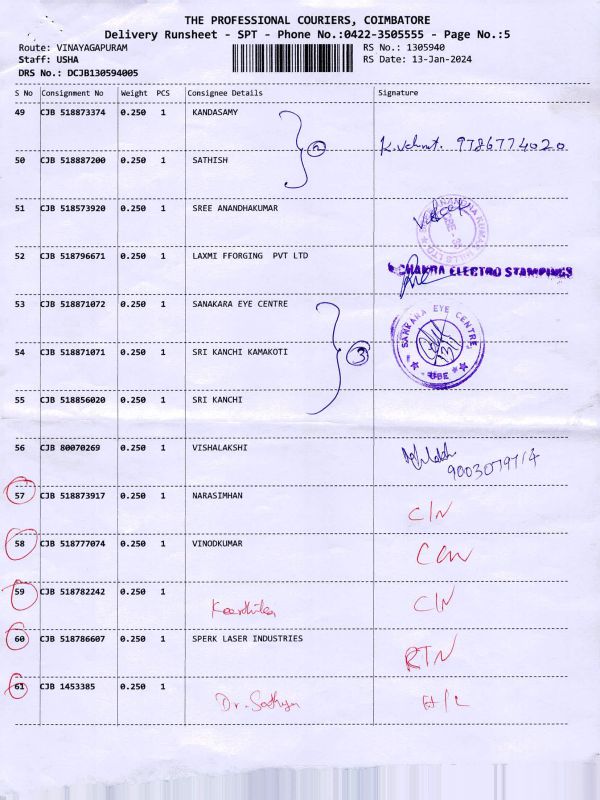 THE PROFESSIONAL COURIERS, COIMBATORE
Delivery Runsheet - SPT - Phone No.:0422-3505555 - Page No.:5
Route: VINAYAGAPURAM RS No.: 1305940
Staff: USHA RS Date: 13-Jan-2024
DRS No.: DCJB130594005
S No Consignment No Weight PCS Consignee Details Signature
49 CJB 518873374 0.250 1 KANDASAMY
2 9786774020
50 CJB 518887200 0.250 1 SATHISH
51 CJB 518573920 0.250 1 SREE ANANDHAKUMAR
52 CJB 518796671 0.250 1 LAXMI FFORGING PVT LTD
CHAKRA ELECTRO STAMPINGS
53 CJB 518871072 0.250 1 SANAKARA EYE CENTRE
SANKARA EYE CENTRE
54 CJB 518871071 0.250 1 SRI KANCHI KAMAKOTI 3
CBE
55 CJB 518856020 0.250 1 SRI KANCHI
56 CJB 80070269 0.250 1 VISHALAKSHI
57 CJB 518873917 0.250 1 NARASIMHAN
C/N
58 CJB 518777074 0.250 1 VINODKUMAR
59 CJB 518782242 0.250 1
C/N
60 CJB 518786607 0.250 1 SPERK LASER INDUSTRIES
RTN
61 CJB 1453385 0.250 1
Dr. Sathya